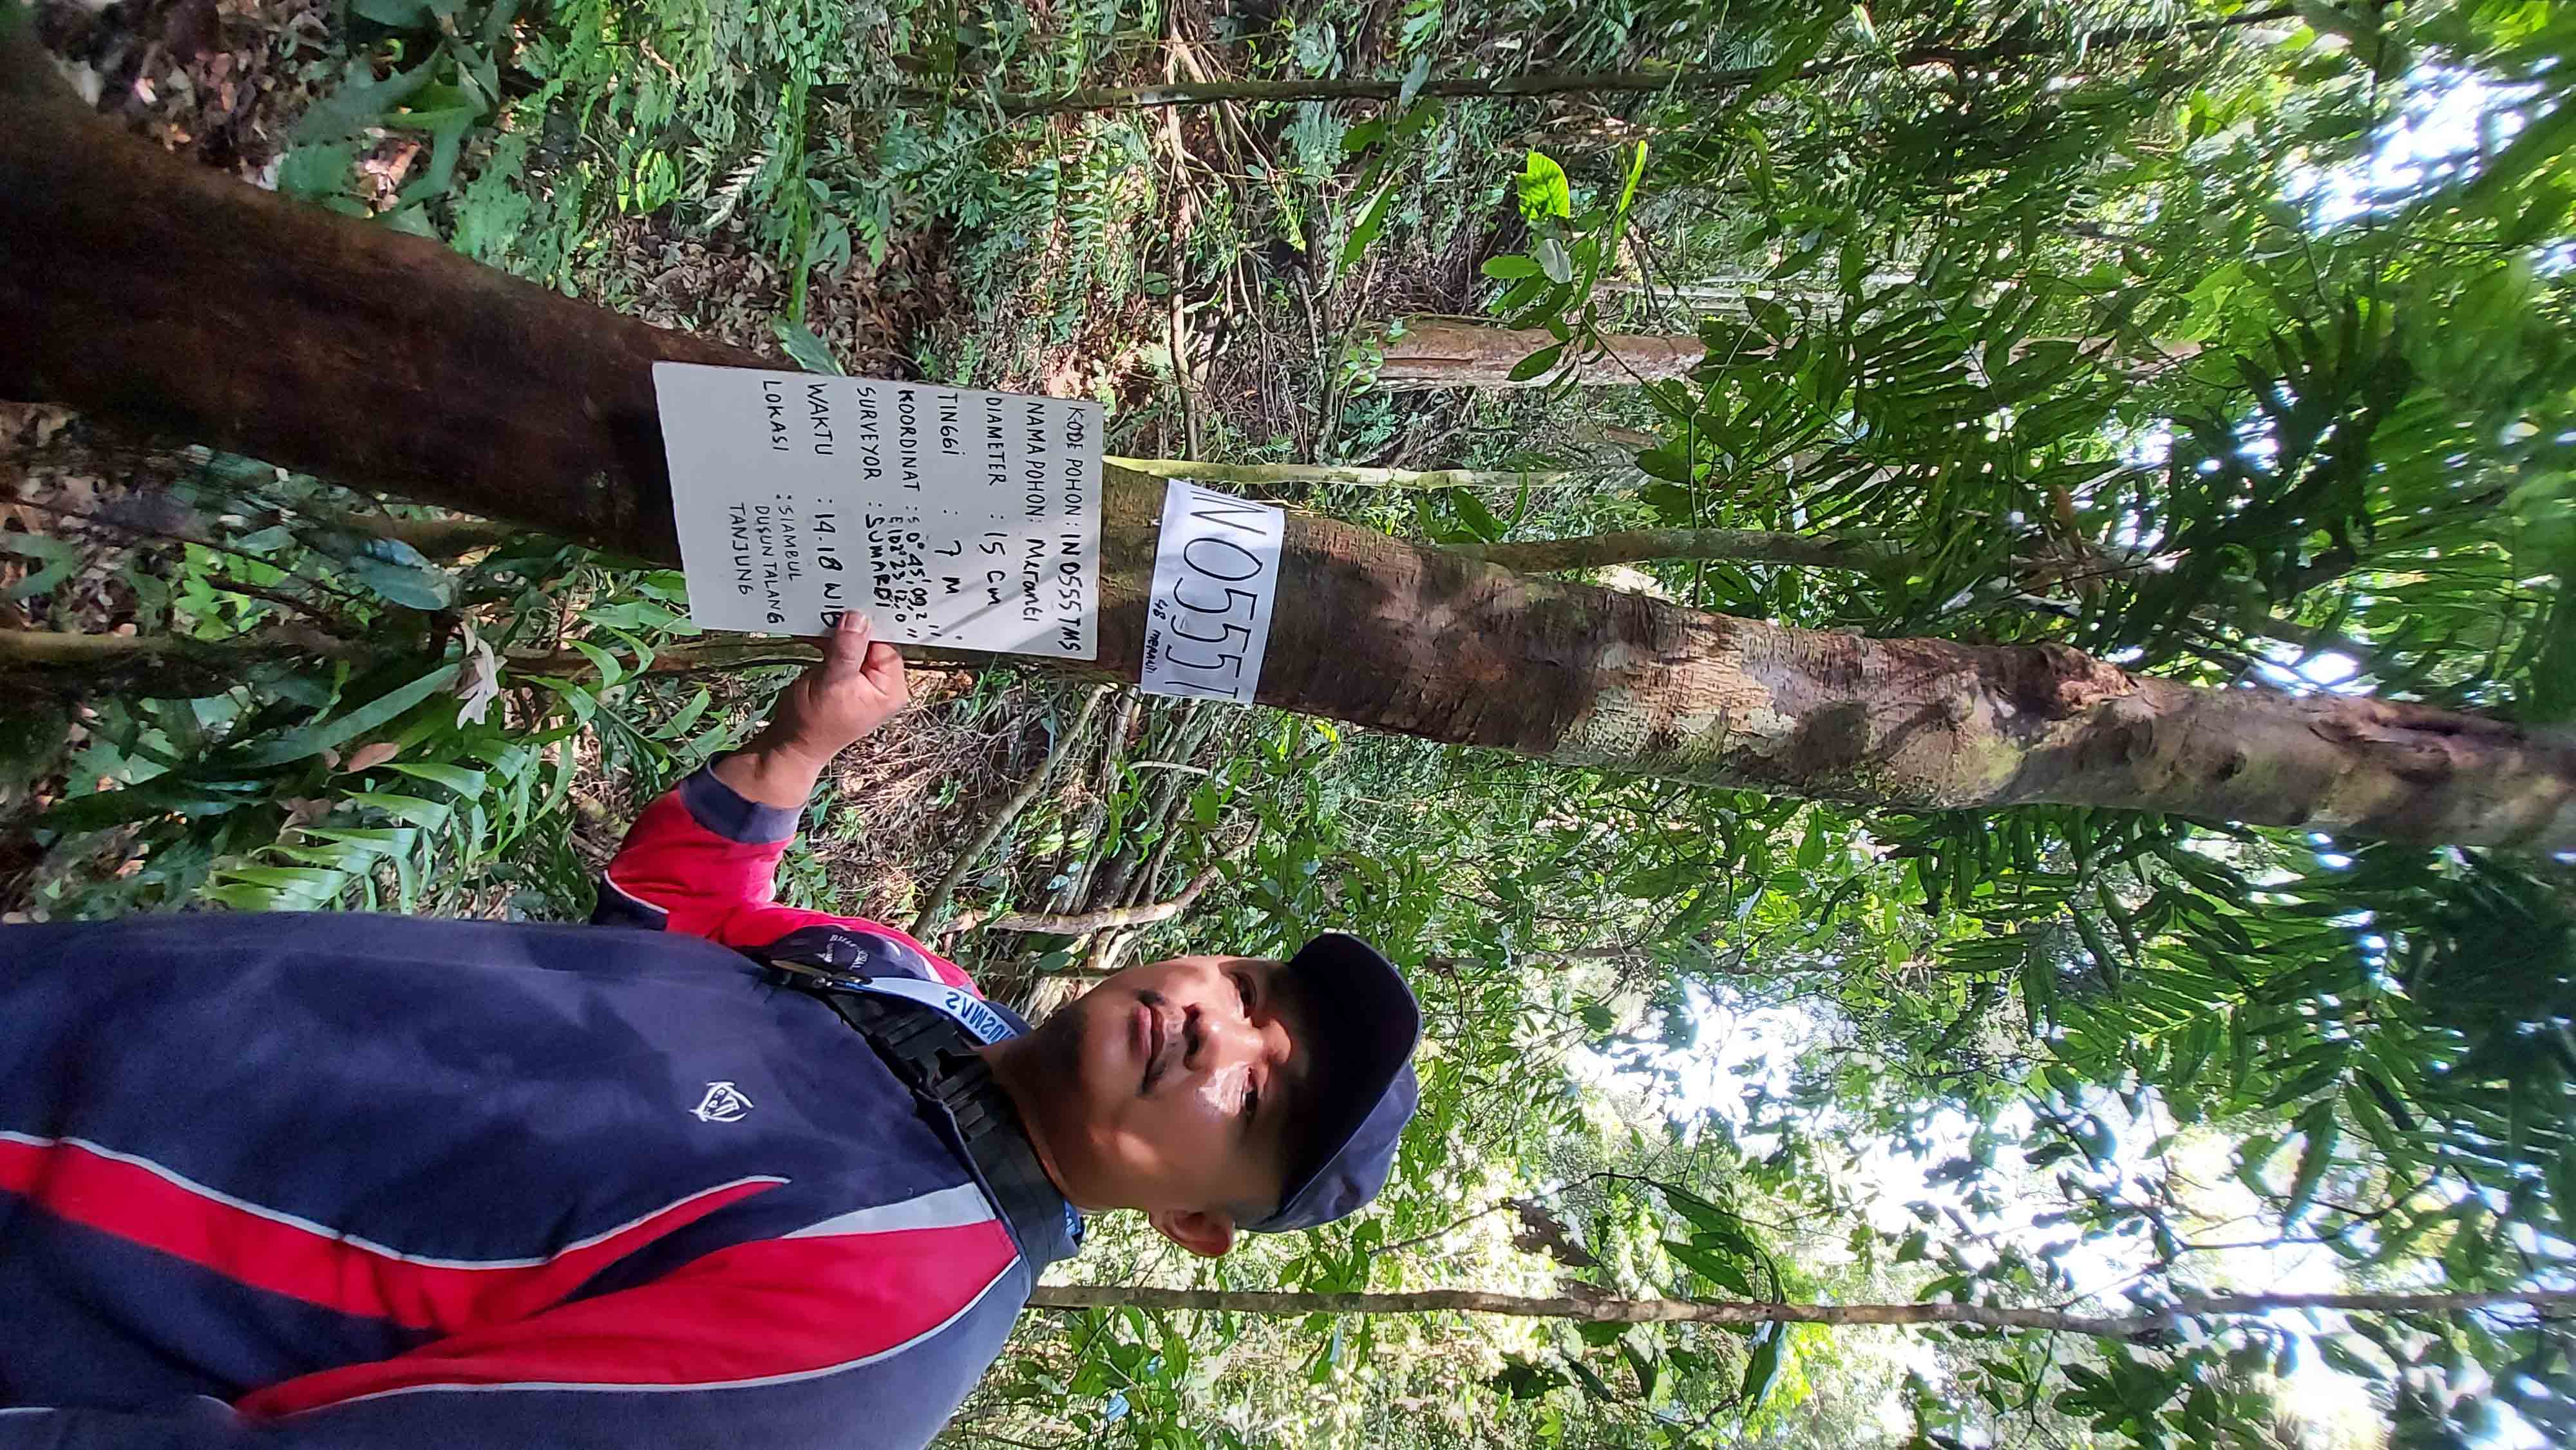 IN0555T
48 MERANTI
KODE POHON : IN 0555 TMS
NAMA POHON : Meranti
DIAMETER : 15 Cm
TINGGI : 7 M
KOORDINAT : S 0° 45' 09,2"
E 102° 23' 12.0"
SURVEYOR : SUMARDI
WAKTU : 14.18 WIB
LOKASI : SIAMBUL
DUSUN TALANG
TANJUNG